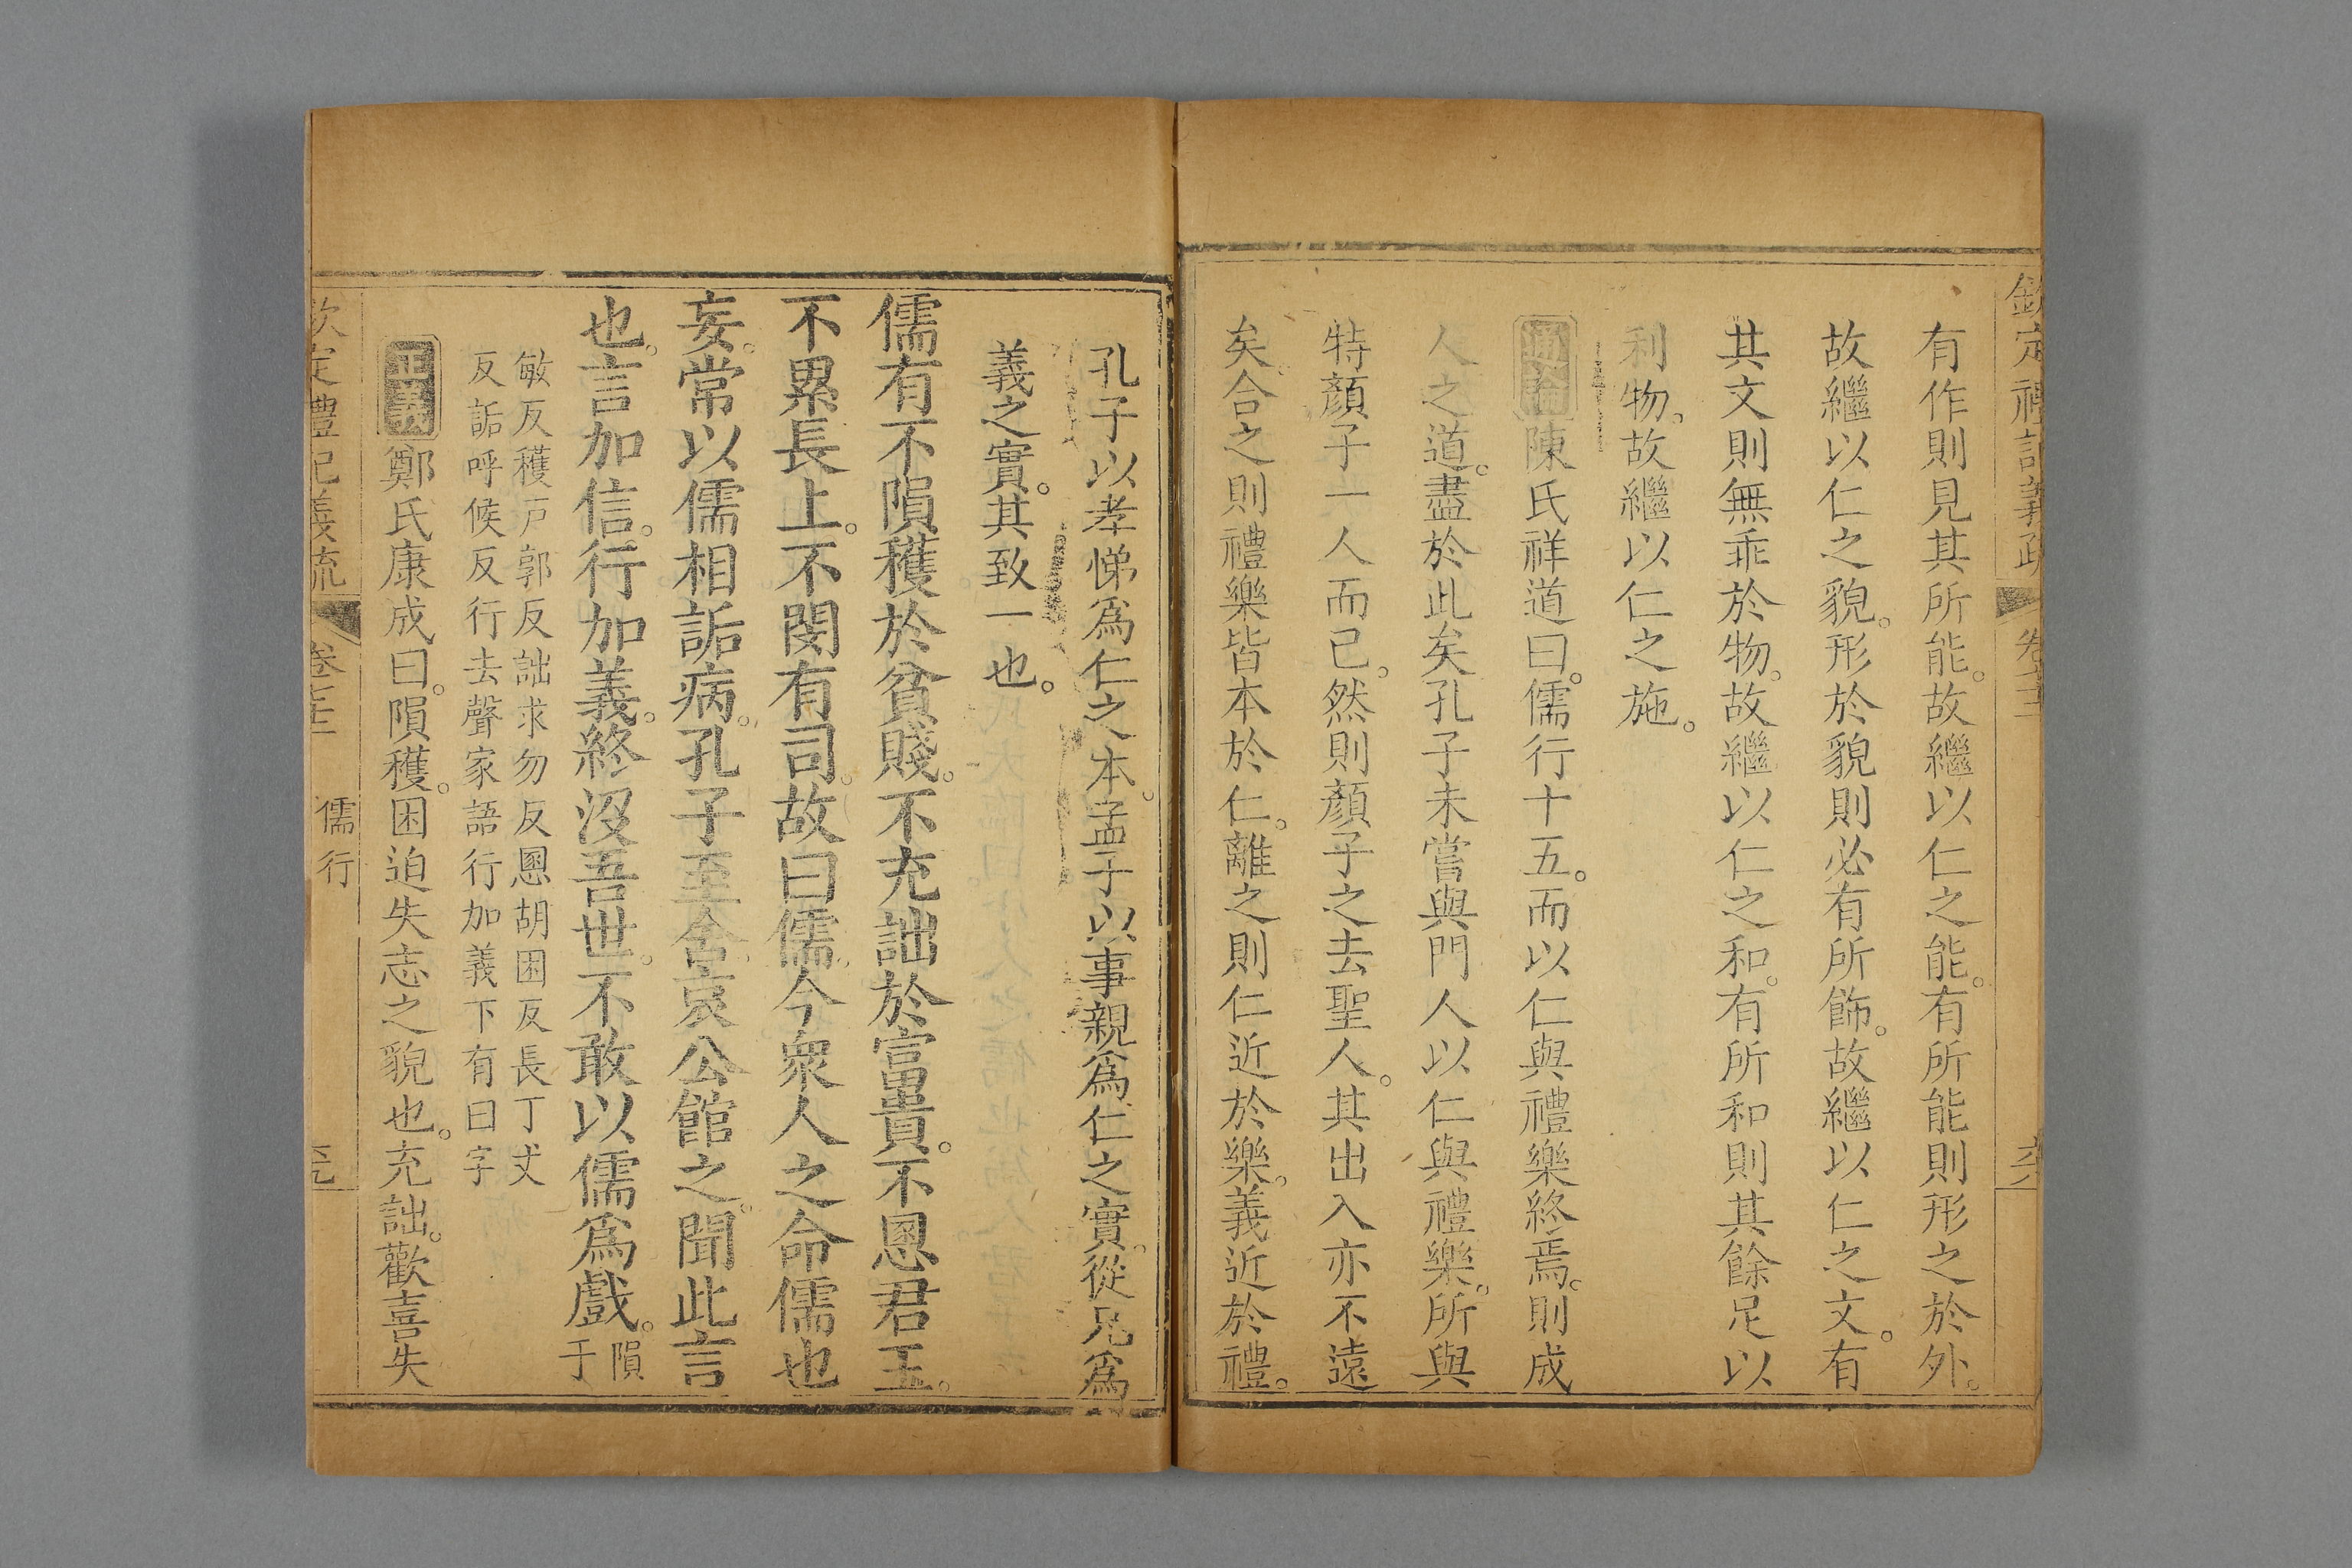 欽定禮記義疏 卷 六
有作則見其所能。故繼以仁之能。有所能則形之於外。
故繼以仁之貌。形於貌則必有所飾。故繼以仁之文。有
其文則無乖於物。故繼以仁之和。有所和則其餘足以
利物。故繼以仁之施。
通論陳氏祥道曰。儒行十五。而以仁與禮樂終焉。則成
人之道。盡於此矣孔子未嘗與門人以仁與禮樂。所與
特顏子一人而已。然則顏子之去聖人。其出入亦不遠
矣。合之則禮樂皆本於仁。離之則仁近於樂。義近於禮。
孔子以孝悌為仁之本。孟子以事親為仁之實。從兄為
義之實。其致一也。
儒有不隕穫於貧賤。不充詘於富貴。不慁君王。
不累長上。不閔有司。故曰儒。今衆人之命儒也
妄。常以儒相詬病。孔子至舍。哀公館之。聞此言
也。言加信。行加義。終沒吾世。不敢以儒為戲。隕
于
敏反穫戸郭反詘求勿反慁胡困反長丁丈
反詬呼候反行去聲家語行加義下有曰字
正義鄭氏康成曰。隕穫。困迫失志之貌也。充詘。歡喜失
欽定禮記義疏 卷 儒行